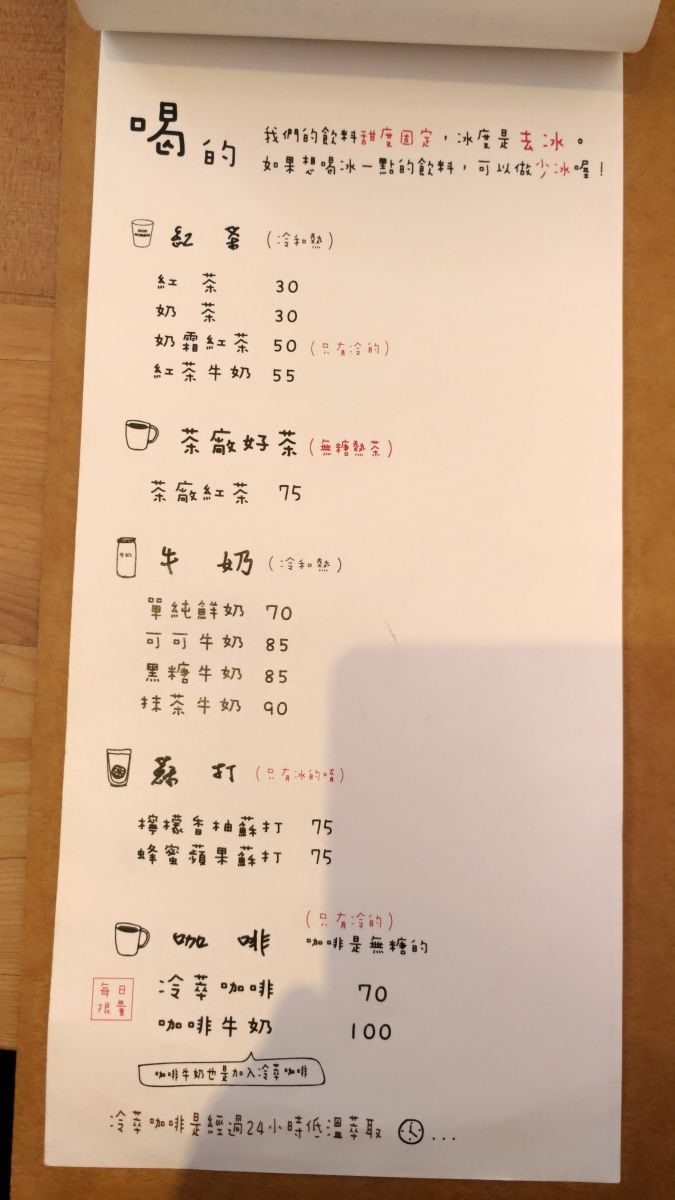 喝的
我們的飲料甜度固定，冰度是去冰。
如果想喝冰一點的飲料，可以做少冰喔！
紅茶（冷和熱）
紅茶 30
奶茶 30
奶霜紅茶 50（只有冷的）
紅茶牛奶 55
茶廠好茶（無糖熱茶）
茶廠紅茶 75
牛奶
牛奶（冷和熱）
單純鮮奶 70
可可牛奶 85
黑糖牛奶 85
抹茶牛奶 90
蘇打（只有冰的唷）
檸檬香柚蘇打 75
蜂蜜蘋果蘇打 75
（只有冷的）
咖啡 咖啡是無糖的
每日
限量
冷萃咖啡 70
咖啡牛奶 100
咖啡牛奶也是加入冷萃咖啡
冷萃咖啡是經過24小時低溫萃取 ...